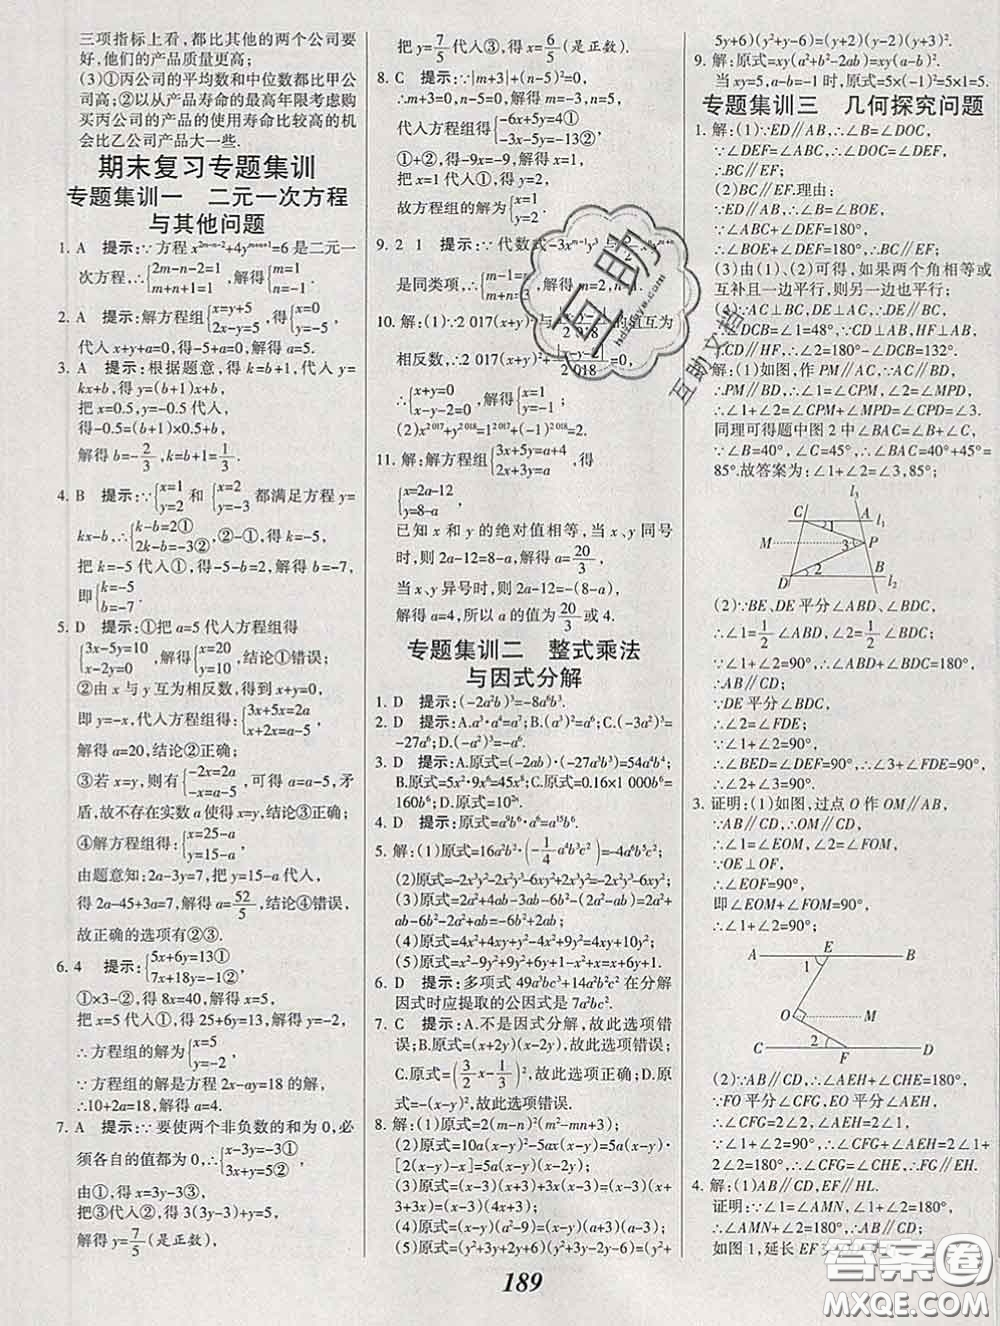 三项指标上看,都比其他的两个公司要
好,他们的产品质量更高;
(3)①丙公司的平均数和中位数都比甲公
司高;②以从产品寿命的最高年限考虑购
买丙公司的产品的使用寿命比较高的机
会比乙公司产品大一些.
期末复习专题集训
专题集训一 二元一次方程
与其他问题
1. A 提示:∵方程x^{2m-n-2}+4y^{m+n+1}=6是二元一
次方程,∴{2m-n-2=1 m+n+1=1,解得{m=1 n=-1.
2. A 提示:解方程组{x=y+5 2x-y=5,解得{x=0 y=-5.
代入x+y+a=0,得0-5+a=0,解得a=5.
3. A 提示:根据题意,得k=b+1,代入y=
kx+b,得y=(b+1)x+b.
把x=0.5,y=-0.5代入,
得-0.5=(b+1)×0.5+b,
解得b=-2/3,k=b+1=1/3.
4. B 提示:∵{x=1 y=2和{x=2 y=-3都满足方程y=
kx-b,∴{k-b=2① 2k-b=-3②,②-①,得k=-5,
把k=-5代入①,得-5-b=2,解得b=-7,
即{k=-5 b=-7.
5. D 提示:①把a=5代入方程组得
{3x-5y=10 x-2y=0,解得{x=20 y=10,结论①错误;
②由x与y互为相反数,得到x+y=0,
即y=-x,代入方程组得:{3x+5x=2a x+2x=a-5,
解得a=20,结论②正确;
③若x=y,则有{-2x=2a -x=a-5,可得a=a-5,矛
盾,故不存在实数a使得x=y,结论③正确;
④解方程组得:{x=25-a y=15-a,
由题意知:2a-3y=7,把y=15-a代入得:
得2a-45+3a=7,解得a=52/5,结论④错误,
故正确的选项有②③.
6. 4 提示:{5x+6y=13① 7x+18y=-1②,
①×3-②,得8x=40,解得x=5,
把x=5代入①,得25+6y=13,解得y=-2,
∴方程组的解为{x=5 y=-2.
∵方程组的解是方程2x-ay=18的解,
∴10+2a=18,解得a=4.
7. A 提示:∵要使两个非负数的和为0,必
须各自的值都为0,∴{x-3y=-3① 3x+y=5②,
由①,得x=3y-3③,
把③代入②,得3(3y-3)+y=5,
解得y=7/5(是正数),
把y=7/5代入③,得x=6/5(是正数).
8. C 提示:∵|m+3|+(n-5)²=0,
∴m+3=0,n-5=0,解得m=-3,n=5,
代入方程组得{-6x+5y=4① -3x-5y=-13②,
①+②,得-9x=-9,解得x=1,
把x=1代入①,得y=2,
故方程组的解为{x=1 y=2.
9. 2 1 提示:∵代数式-3x^{m-1}y³与
是同类项,∴{m-1=n m+n=3,解得m=2,n=1.
10. 解:(1)∵2 017(x+y)²与 的值互为
相反数,∴2 017(x+y)²+ =0,
∴{x+y=0 x-y-2=0,解得{x=1 y=-1.
(2)x^{2 017}+y^{2 018}=1^{2 017}+(-1)^{2 018}=2.
11. 解:解方程组{3x+5y=a+4 2x+3y=a,得
{x=2a-12 y=8-a,
已知x和y的绝对值相等,当x、y同号
时,则2a-12=8-a,解得a=20/3,
当x、y异号时,则2a-12=-(8-a),
解得a=4,所以a的值为20/3或4.
专题集训二 整式乘法
与因式分解
1. D 提示:(-2a²b)³=-8a⁶b³.
2. D 提示:A.a³·a⁴=a⁷;B.(a³)²=a⁶;C.(-3a²)³=
-27a⁶;D.(-a²)³=-a⁶.
3. D 提示:A.原式=(-2ab)·(-27a³b³)=54a⁴b⁴;
B.原式=5x²·9x⁶=45x⁸;C.原式=0.16×1 000b⁶=
160b⁶;D.原式=10^{2n}.
4. D 提示:原式=a⁹b⁶·a⁶=a¹⁵b⁶.
5. 解:(1)原式=16a²b²·(-1/4a⁴b³c²)=-4a⁶b⁵c²;
(2)原式=-2x³y²-2x²y³-2x²y²+2x²y³=-2x³y²-2x²y²;
(3)原式=2a²+4ab-3ab-6b²-2ab=2a²+
ab-6b²-2a²+ab=-5a²+ab-b²;
(4)原式=4x²+4xy-4x²+9y²=4xy+10y²;
(5)原式=x²-9y²+9y²+6y+1=x+6y+1.
6. D 提示:多项式49a³bc³+14a²b²c²在分解
因式时应提取的公因式是7a²bc².
7. C 提示:A.不是因式分解,故此选项错
误;B.原式=(x+2y)(x-2y),故此选项错误;
C.原式=(3/2x-1/3)²,故此选项正确;D.原
式=-(x-y)²,故此选项错误.
8. 解:(1)原式=2(m-n)²(m²-mn+3);
(2)原式=10a(x-y)²-5ax(x-y)=5a(x-y)·
[2(x-y)-x]=5a(x-y)(x-2y);
(3)原式=(x-3)(x+3)+3x(x-3)=(x-3)(x+
3+3x)=(x-3)(4x+3);
(4)原式=(x-y)(a²-9)=(x-y)(a+3)(a-3);
(5)原式=(y²+3y+2y+6)(y²+3y-2y-6)=(y²+
5y+6)(y²+y-6)=(y+2)(y-2)(y+3)².
9. 解:原式=xy(a²+b²-2ab)=xy(a-b)².
当xy=5,a-b=-1时,原式=5×(-1)²=5×1=5.
专题集训三 几何探究问题
1. 解:(1)∵ED∥AB,∴∠B=∠DOC,
∵∠DEF=∠ABC,∴∠DEF=∠DOC,
∴BC∥EF;
(2)BC∥EF.理由:
∵ED∥AB,∴∠B=∠BOE,
∵∠ABC+∠DEF=180°,
∴∠BOE+∠DEF=180°,∴BC∥EF;
(3)由(1)、(2)可得,如果两个角相等或
互补且一边平行,则另一边也平行;
∠DCB=∠1=48°,∵CD∥AB,HF∥AB,
∴CD∥HF,∴∠2=180°-∠DCB=132°.
解:(1)如图,作PM∥AC,∵AC∥BD,
∴PM∥BD,∴∠1=∠CPM,∠2=∠MPD,
∴∠1+∠2=∠CPM+∠MPD=∠CPD=∠3.
同理可得题中图2中∠BAC=∠B+∠C,
∵∠B=40°,∠C=45°,∴∠BAC=40°+45°=
85°.故答案为:∠1+∠2=∠3,85°;
C A l₁ l₃ 1 M 3 P 2 D B l₂
(2)∵BE、DE平分∠ABD、∠BDC,
∴∠1=1/2∠ABD,∠2=1/2∠BDC,
∵∠1+∠2=90°,∴∠ABD+∠BDC=180°,
∴AB∥CD;
∵DE平分∠BDC,
∴∠2=∠FDE;
∵∠1+∠2=90°,
∴∠BED=∠DEF=90°,∴∠3+∠FDE=90°,
∴∠2+∠3=90°.
3. 证明:(1)如图,过点O作OM∥AB,
∵AB∥CD,∴OM∥CD,
∴∠1=∠EOM,∠2=∠FOM,
∵OE⊥OF,
∴∠EOF=90°,
即∠EOM+∠FOM=90°,
∴∠1+∠2=90°;
A E B 1
O M
C 2 F D
(2)∵AB∥CD,∴∠AEH+∠CHE=180°,
∵FO平分∠CFG,EO平分∠AEH,
∴∠CFG=2∠2,∠AEH=2∠1,
∵∠1+∠2=90°,∴∠CFG+∠AEH=2∠1+
2∠2=180°,∴∠CFG=∠CHE,∴FG∥EH.
4. 解:(1)AB∥CD,EF∥HL.
证明:∵∠1=∠AMN,∠1+∠2=180°,
∴∠AMN+∠2=180°,∴AB∥CD;
如图1,延长EF
189
互助文档
答案圈
MXQE.COM